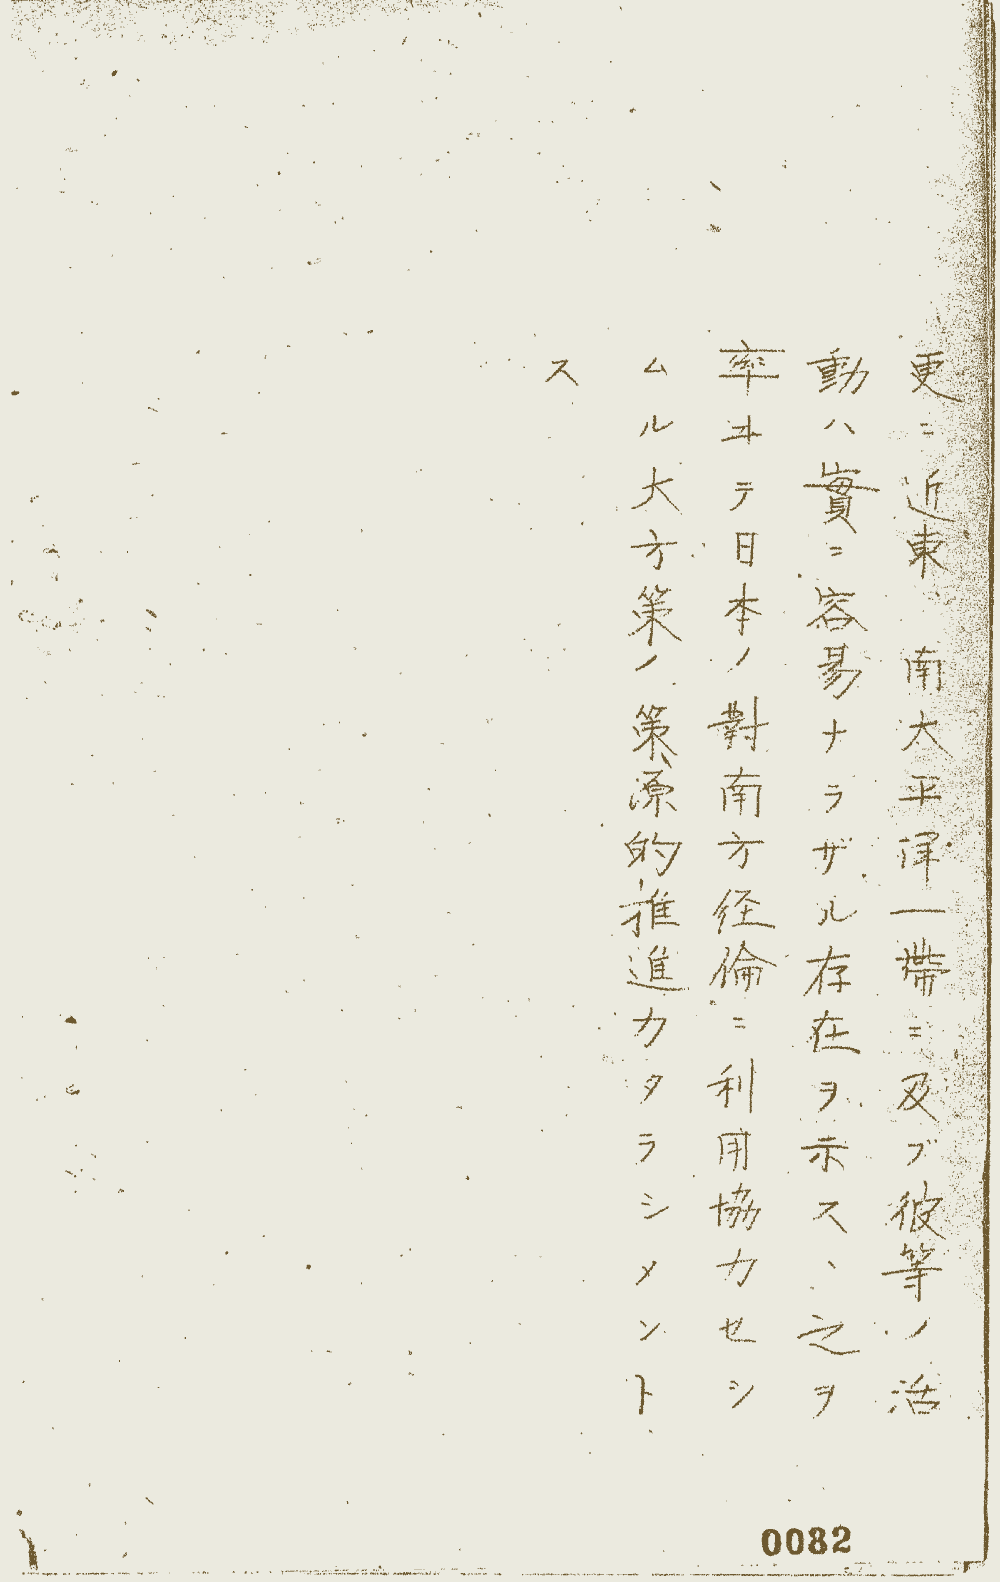 更ニ近東 南太平洋一帶ニ及ブ彼等ノ活
動ハ實ニ容易ナラザル存在ヲ示ス、之ヲ
率ヰテ日本ノ對南方経倫ニ利用協力セシ
ムル大方策ノ策源的推進力タラシメント
ス
0082